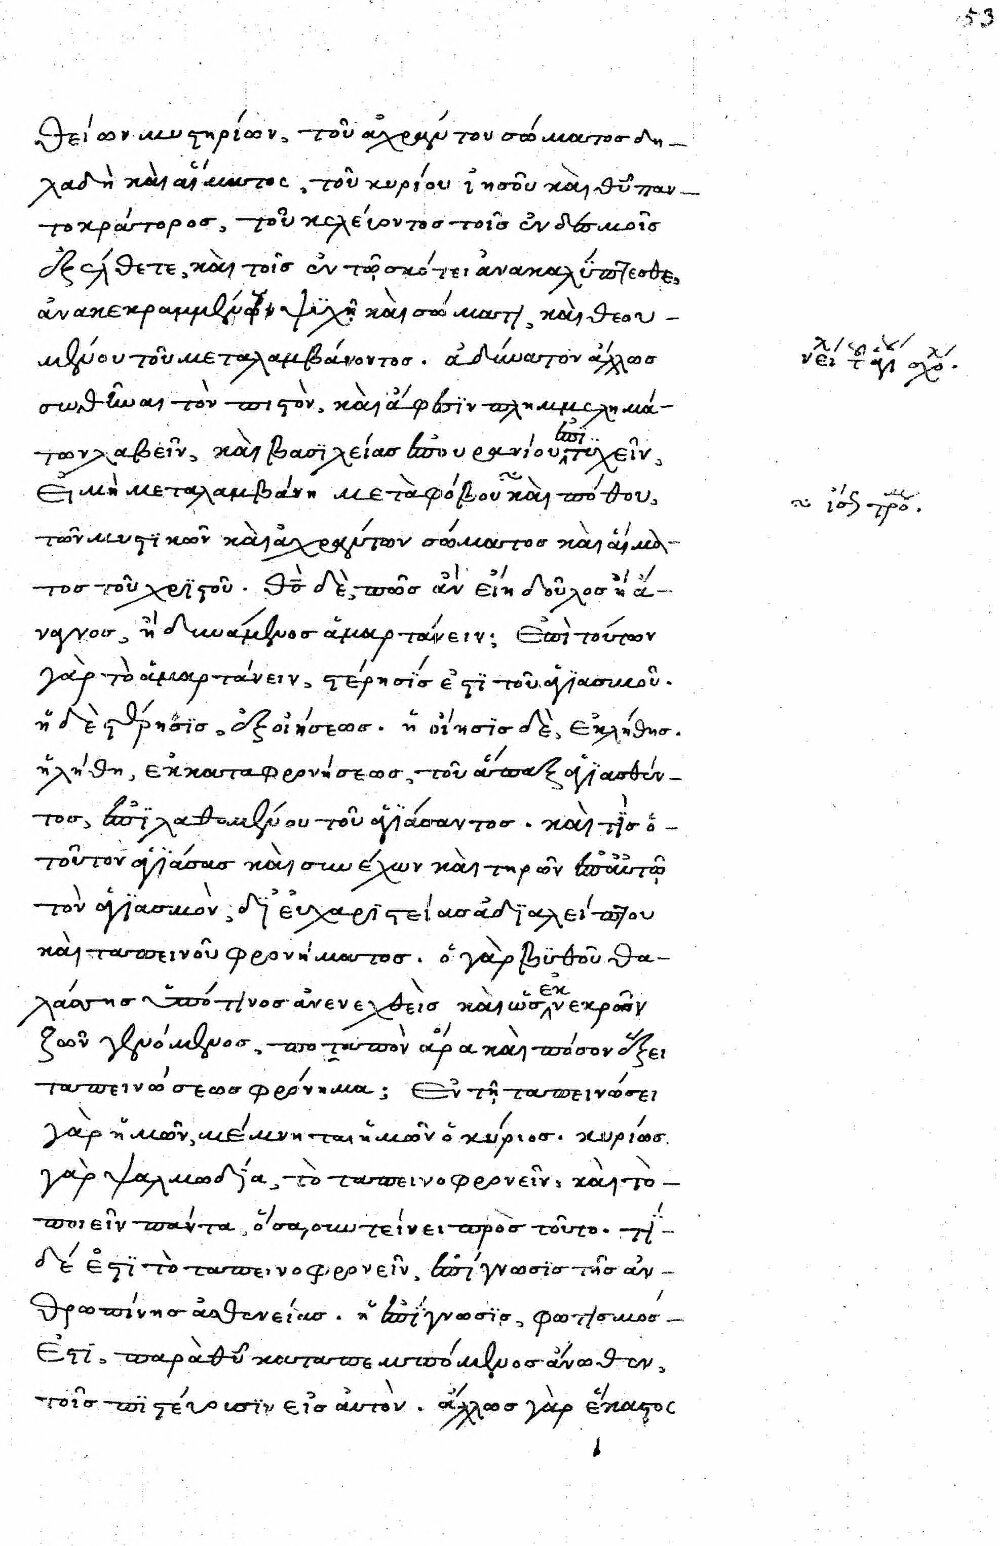 53
θείων μυστηρίων, τοῦ ἀχράντου σώματος δη-
λαδὴ καὶ αἵματος, τοῦ κυρίου ἰησοῦ καὶ θῦ παν-
τοκράτορος, τοῦ κελεύοντος τοῖς ἐν δεσμοῖς
ἐξέλθετε, καὶ τοῖς ἐν τῷ σκότει ἀνακαλύπτεσθε,
ἀνακεκραμμένων ψυχῇ καὶ σώματι, καὶ θεου-
μένου τοῦ μεταλαμβάνοντος. ἀδύνατον ἄλλως
σωθῆναι τὸν πιστὸν, καὶ ἄφεσιν πλημμελημά-
των λαβεῖν, καὶ βασιλείας ἐπουρανίου ἐπιτυχεῖν,
Εἰ μὴ μεταλαμβάνη μετὰ φόβου καὶ πόθου,
τῶν μυστικῶν καὶ ἀχράντων σώματος καὶ αἵμα-
τος τοῦ χριστοῦ. θῦ δὲ, πῶς ἂν εἴη δοῦλος ἢ ἄ-
ναγνος, ἢ δυνάμενος ἁμαρτάνειν; Ἐπὶ τούτων
γὰρ τὸ ἁμαρτάνειν, στέρησίς ἐστι τοῦ ἁγιασμοῦ.
ἡ δὲ στέρησις, ἐξ οἰήσεως. ἡ οἴησις δὲ, ἐκλήθης.
ἡ λήθη, ἐκ καταφρονήσεως, τοῦ ἅπαξ ἁγιασθέν-
τος, ἐπιλαθομένου τοῦ ἁγιάσαντος. καὶ τίς ὁ
τοῦτον ἁγιάσας καὶ συνέχων καὶ τηρῶν ἐπ' αὐτῷ
τὸν ἁγιασμὸν, δι' εὐχαριστείας ἀδιαλείπτου
καὶ ταπεινοῦ φρονήματος. ὁ γὰρ βυθοῦ θα-
λάσσης ὑπό τινος ἀνενεχθεὶς καὶ ὡς ἐκ νεκρῶν
ζῶν γενόμενος, ποταπὸν ἄρα καὶ πόσον ἕξει
ταπεινώσεως φρόνημα; Ἐν τῇ ταπεινώσει
γὰρ ἡμῶν, μέμνηται ἡμῶν ὁ κύριος. κυρίως
γὰρ ψαλμωδία, τὸ ταπεινοφρονεῖν, καὶ τὸ
ποιεῖν πάντα, ὅσα συντείνει πρὸς τοῦτο. τί
δέ ἐστι τὸ ταπεινοφρονεῖν, ἐπίγνωσις τῆς ἀν-
θρωπίνης ἀσθενείας. ἡ ἐπίγνωσις, φωτισμός
ἐστί, παρὰ θῦ καταπεμπόμενος ἄνωθεν,
τοῖς πιστεύουσιν εἰς αὐτὸν. ἄλλως γὰρ ἕκαστος